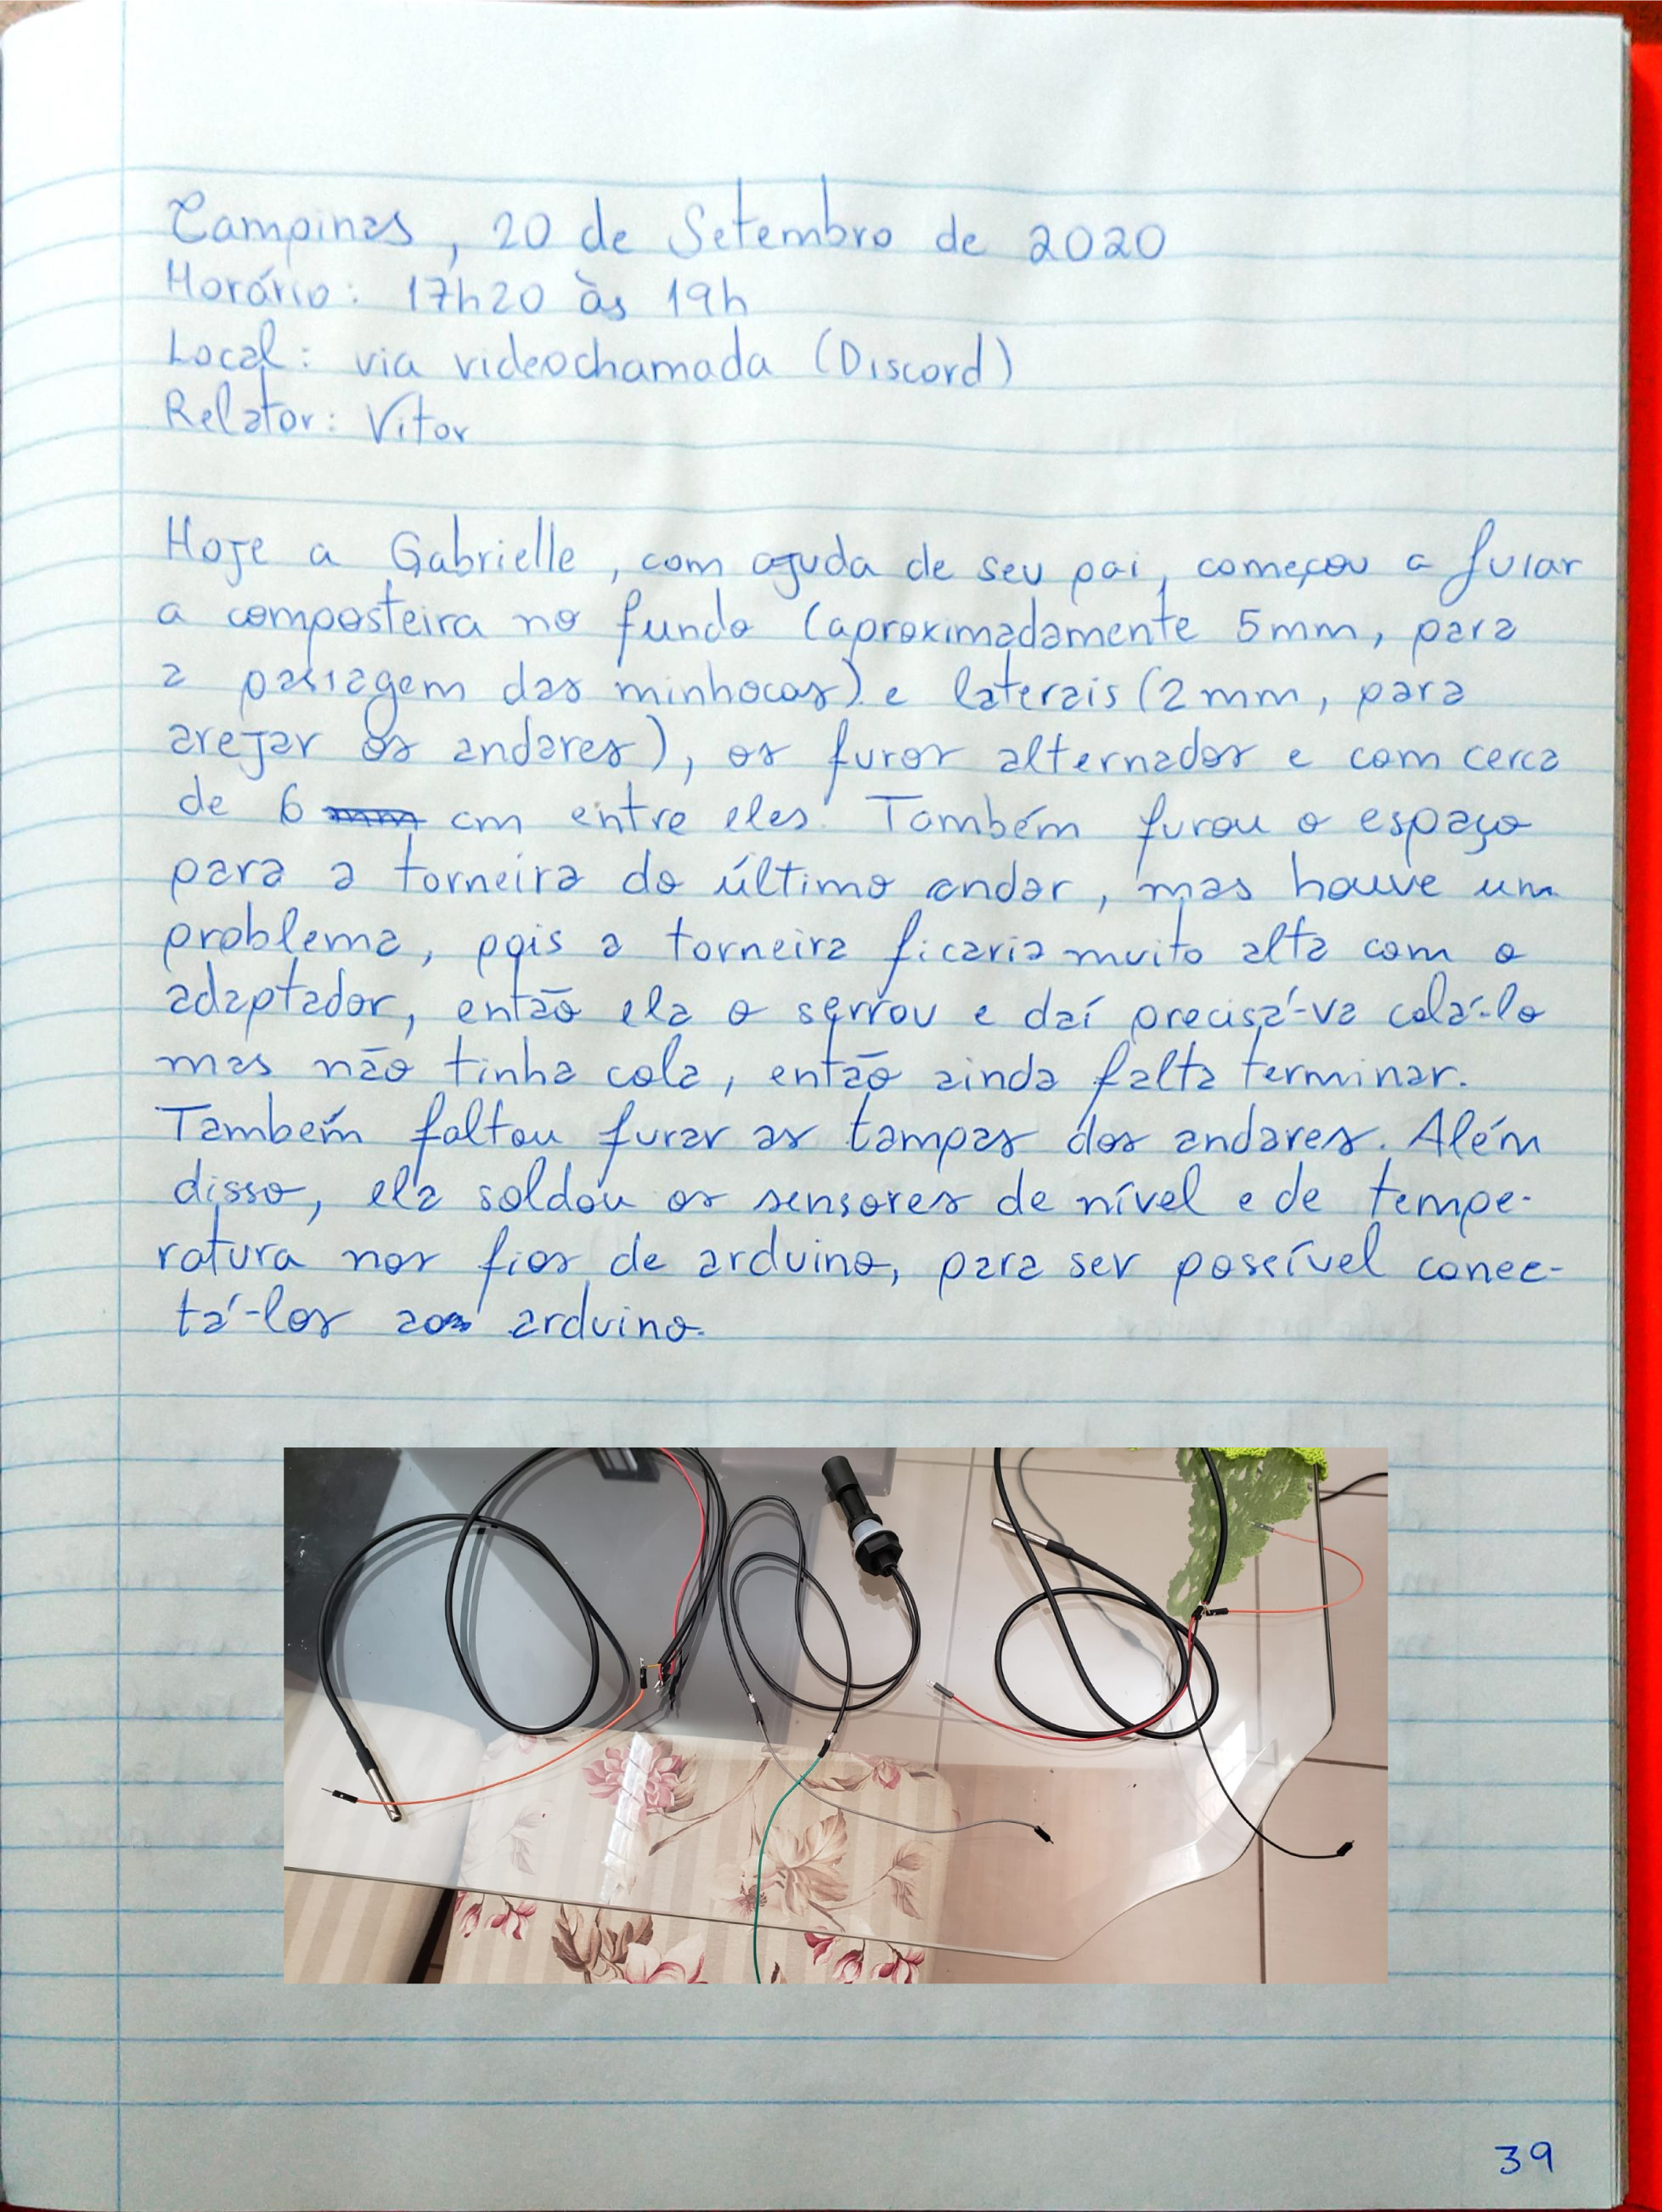 Campinas, 20 de Setembro de 2020
Horário: 17h20 às 19h
Local: via videochamada (Discord)
Relator: Vitor
Hoje a Gabrielle, com ajuda de seu pai, começou a furar
a composteira no fundo (aproximadamente 5mm, para
a passagem das minhocas) e laterais (2mm, para
arejar os andares), os furos alternados e com cerca
de 6 mm cm entre eles. Também furou o espaço
para a torneira do último andar, mas houve um
problema, pois a torneira ficaria muito alta com o
adaptador, então ela o serrou e daí precisá-va colá-lo
mas não tinha cola, então ainda falta terminar.
Também faltou furar as tampas dos andares. Além
disso, ela soldou os sensores de nível e de tempe-
ratura nos fios de arduino, para ser possível conec-
tá-los ao arduino.
39